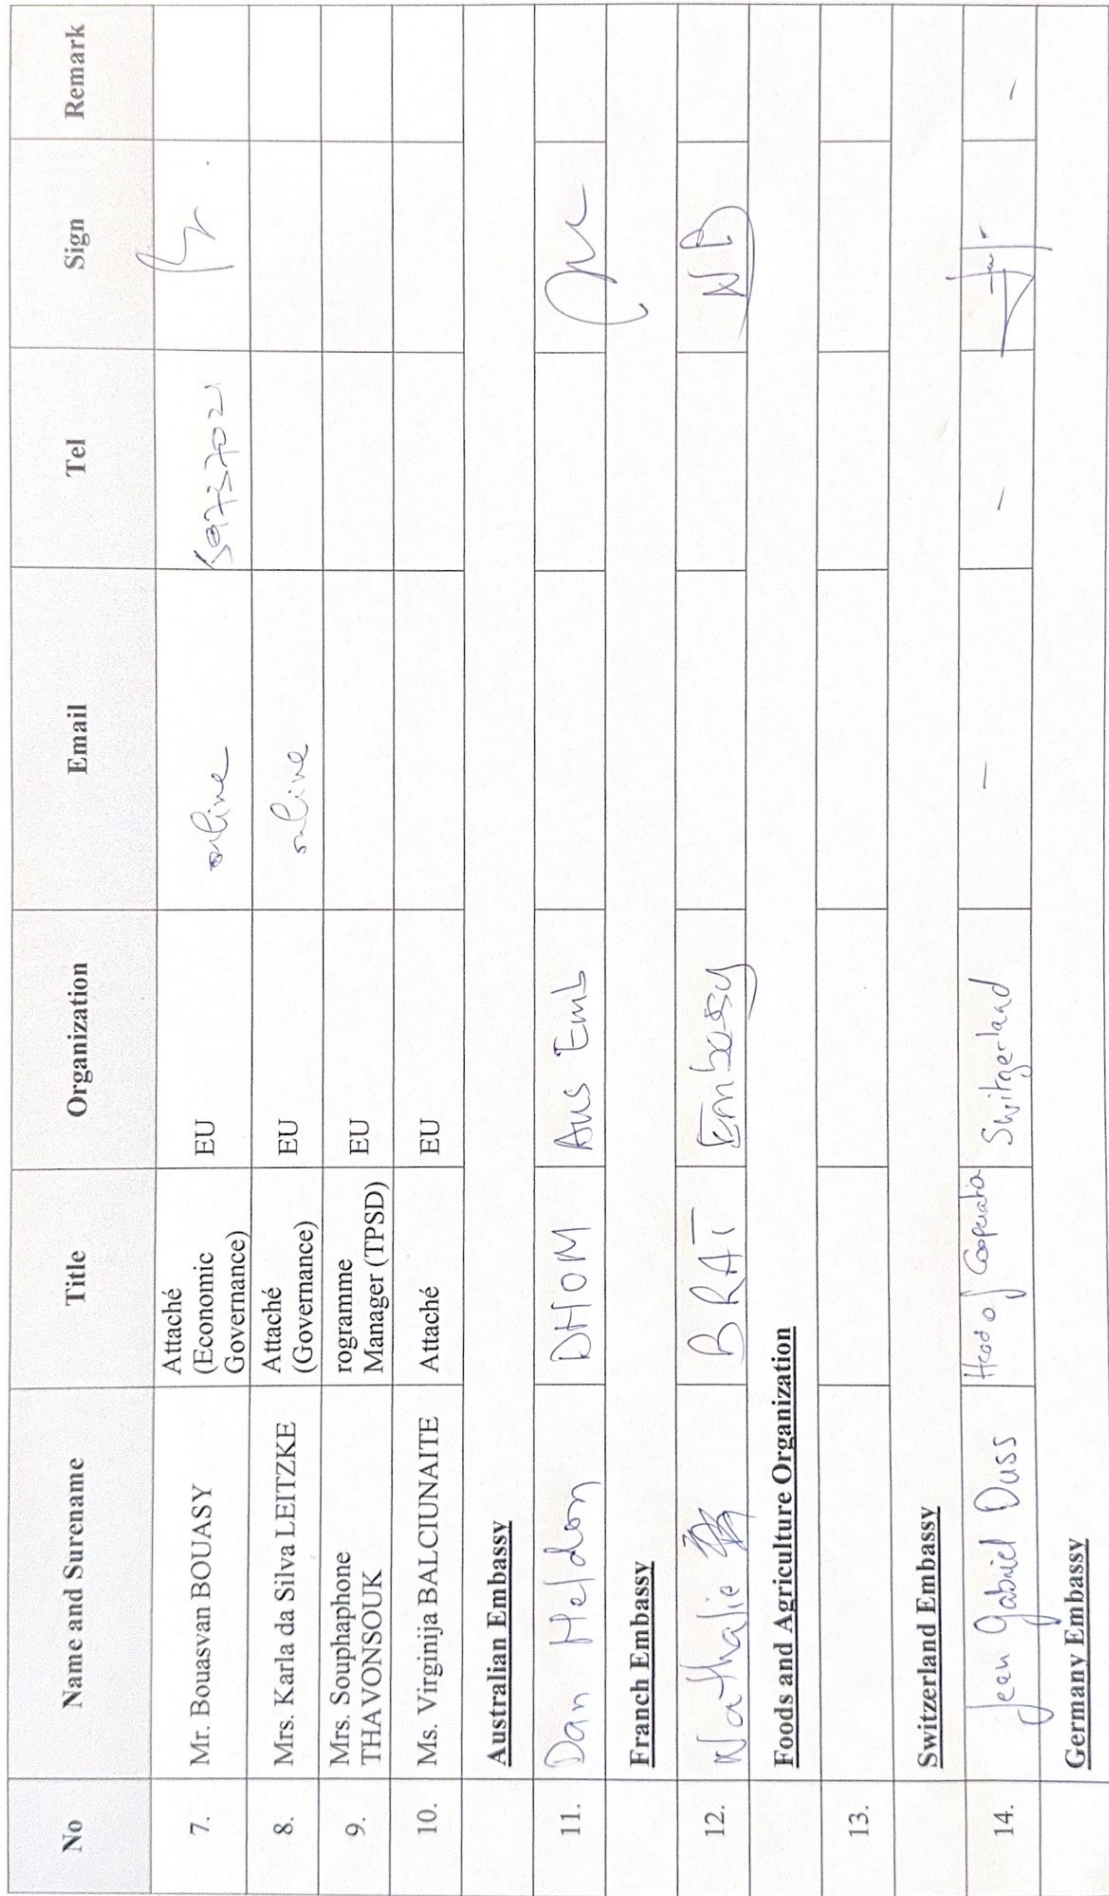 No Name and Surename Title Organization Email Tel Sign Remark
7. Mr. Bouasvan BOUASY Attaché (Economic Governance) EU online
8. Mrs. Karla da Silva LEITZKE Attaché (Governance) EU online
9. Mrs. Souphaphone THAVONSOUK rogramme Manager (TPSD) EU
10. Ms. Virginija BALCIUNAITE Attaché EU
Australian Embassy
11. Dan Heldon DHOM Aus Emb
Franch Embassy
12. Nathalie BRAT Embassy NB
Foods and Agriculture Organization
13.
Switzerland Embassy
14. Jean Gabriel Duss Head of Cooperation Switzerland - - -
Germany Embassy